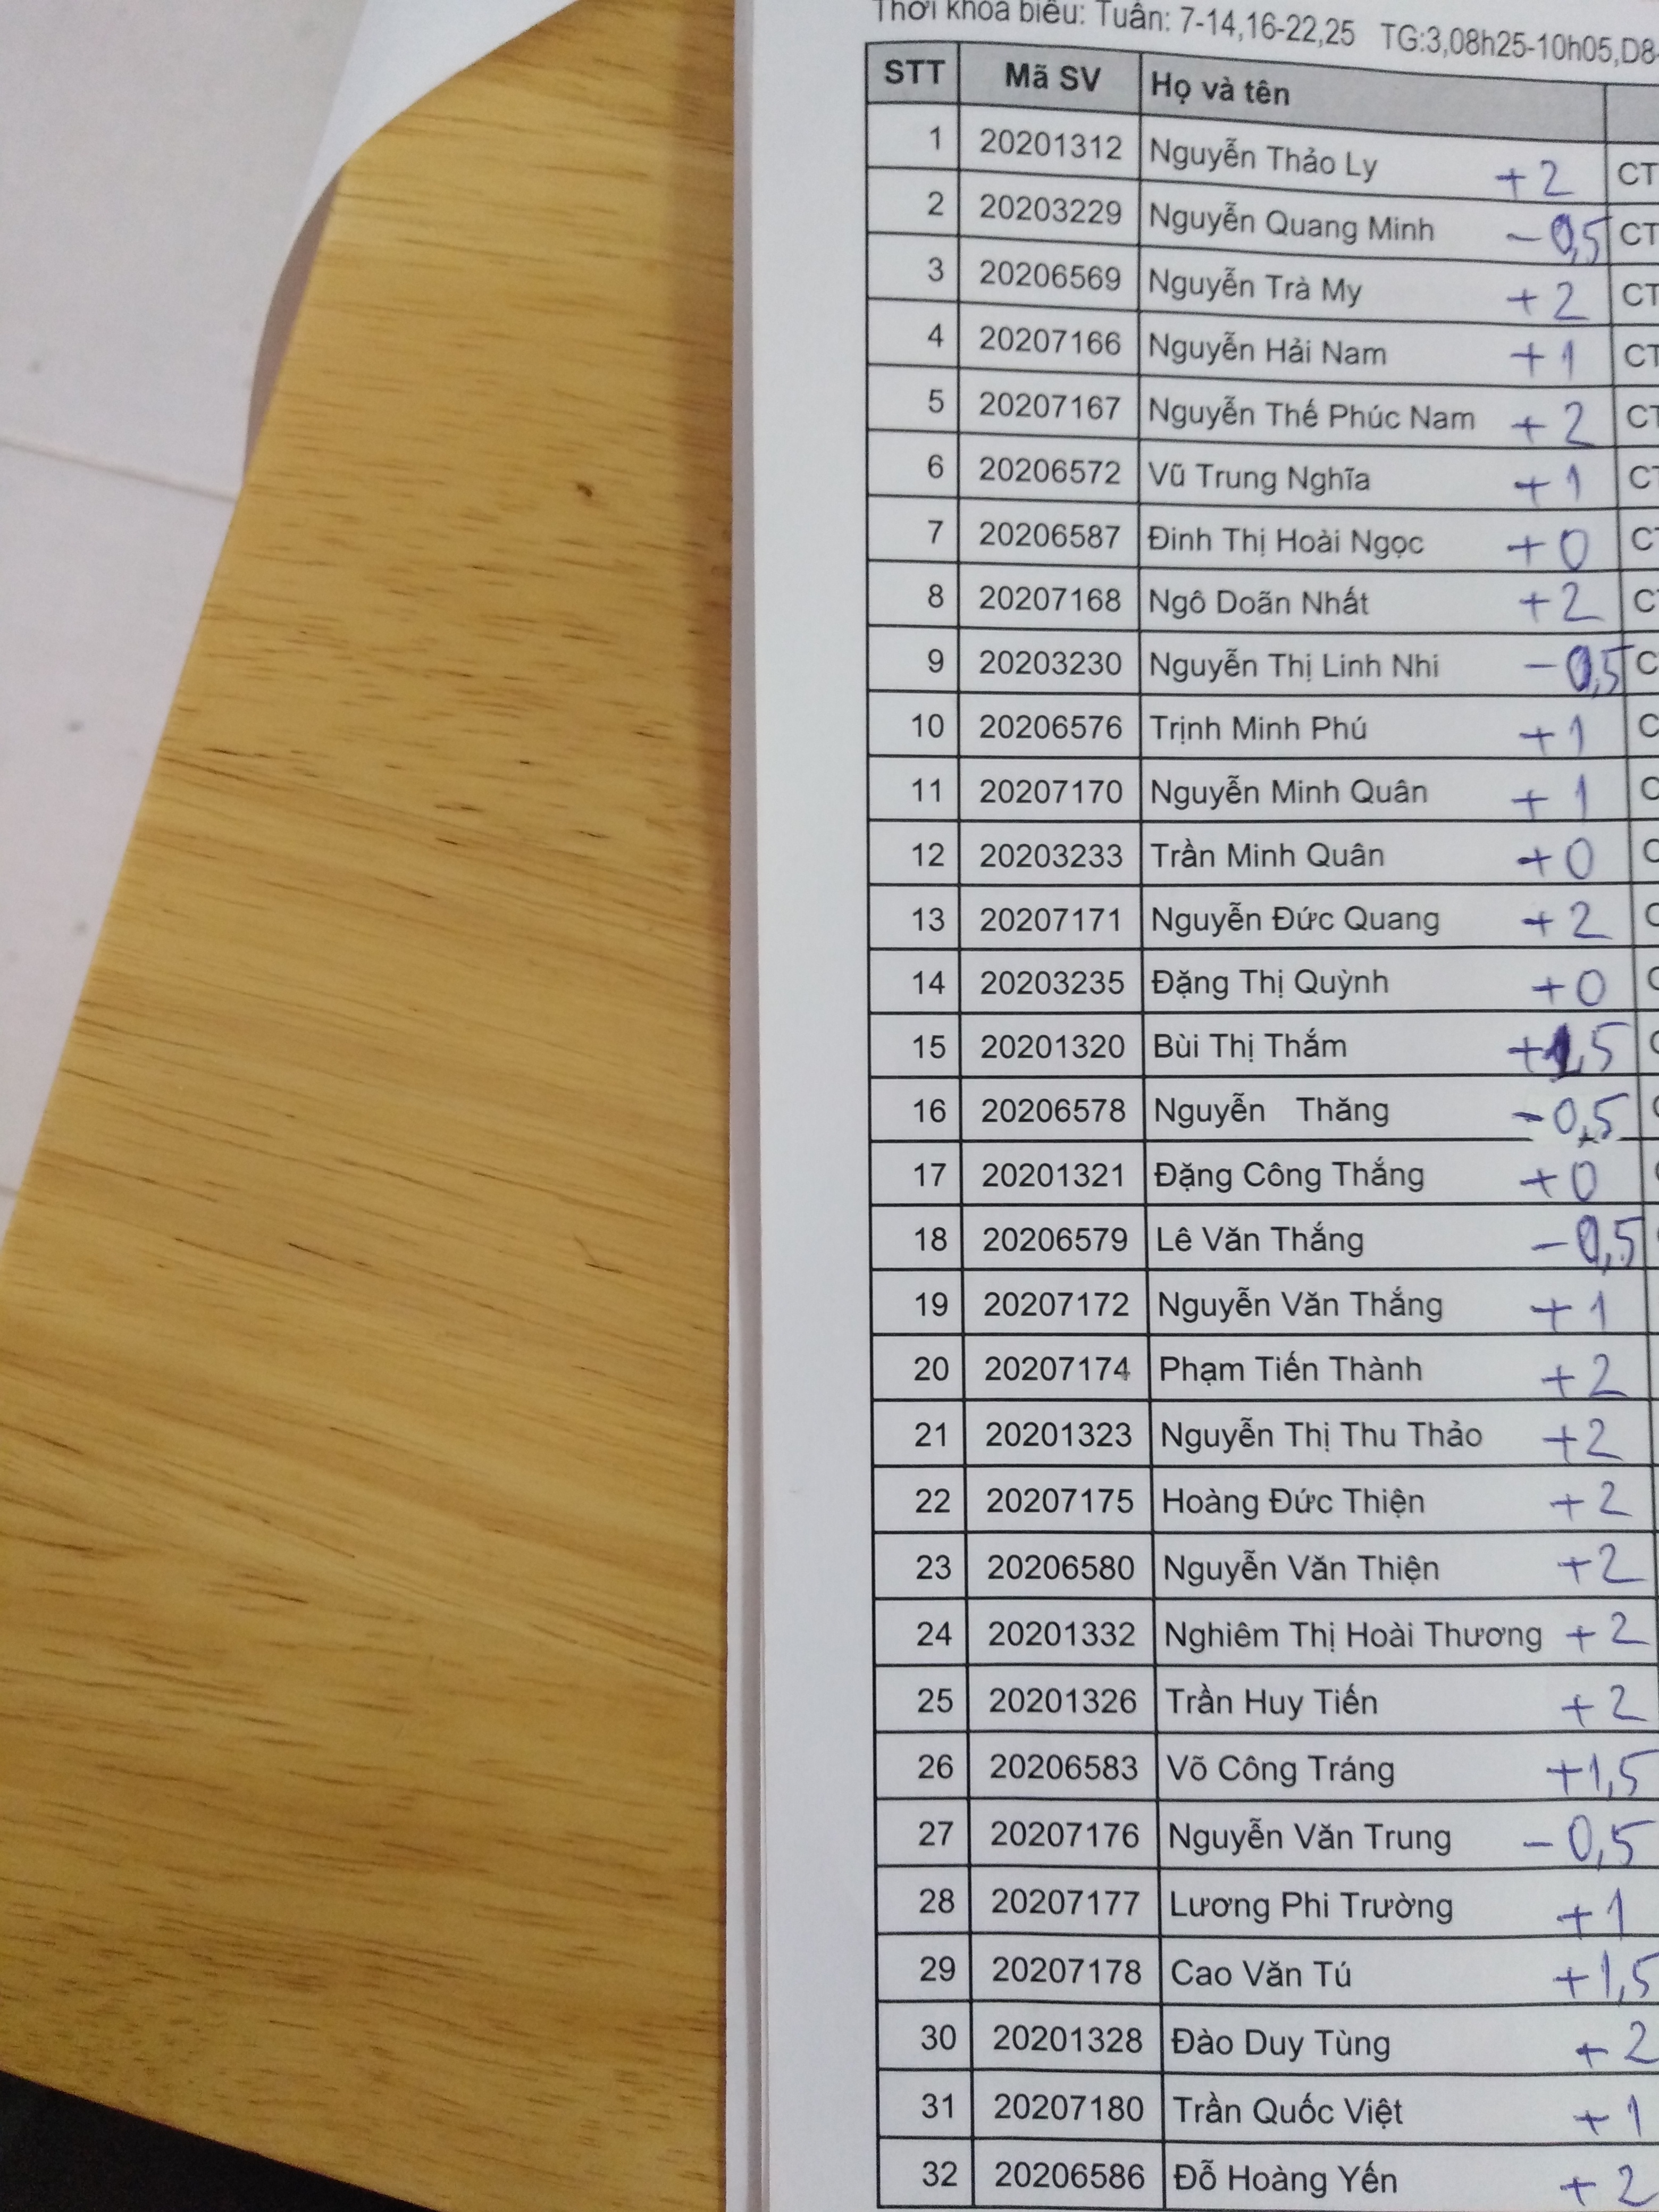 Thời khóa biểu: Tuần: 7-14,16-22,25 TG:3,08h25-10h05,D8-
STT Mã SV Họ và tên
1 20201312 Nguyễn Thảo Ly +2 CT
2 20203229 Nguyễn Quang Minh -0,5 CT
3 20206569 Nguyễn Trà My +2 CT
4 20207166 Nguyễn Hải Nam +1 CT
5 20207167 Nguyễn Thế Phúc Nam +2 CT
6 20206572 Vũ Trung Nghĩa +1 CT
7 20206587 Đinh Thị Hoài Ngọc +0 CT
8 20207168 Ngô Doãn Nhất +2 C
9 20203230 Nguyễn Thị Linh Nhi -0,5 C
10 20206576 Trịnh Minh Phú +1 C
11 20207170 Nguyễn Minh Quân +1 C
12 20203233 Trần Minh Quân +0 C
13 20207171 Nguyễn Đức Quang +2 C
14 20203235 Đặng Thị Quỳnh +0 C
15 20201320 Bùi Thị Thắm +1,5 C
16 20206578 Nguyễn Thăng -0,5 C
17 20201321 Đặng Công Thắng +0
18 20206579 Lê Văn Thắng -0,5
19 20207172 Nguyễn Văn Thắng +1
20 20207174 Phạm Tiến Thành +2
21 20201323 Nguyễn Thị Thu Thảo +2
22 20207175 Hoàng Đức Thiện +2
23 20206580 Nguyễn Văn Thiện +2
24 20201332 Nghiêm Thị Hoài Thương +2
25 20201326 Trần Huy Tiến +2
26 20206583 Võ Công Tráng +1,5
27 20207176 Nguyễn Văn Trung -0,5
28 20207177 Lương Phi Trường +1
29 20207178 Cao Văn Tú +1,5
30 20201328 Đào Duy Tùng +2
31 20207180 Trần Quốc Việt +1
32 20206586 Đỗ Hoàng Yến +2